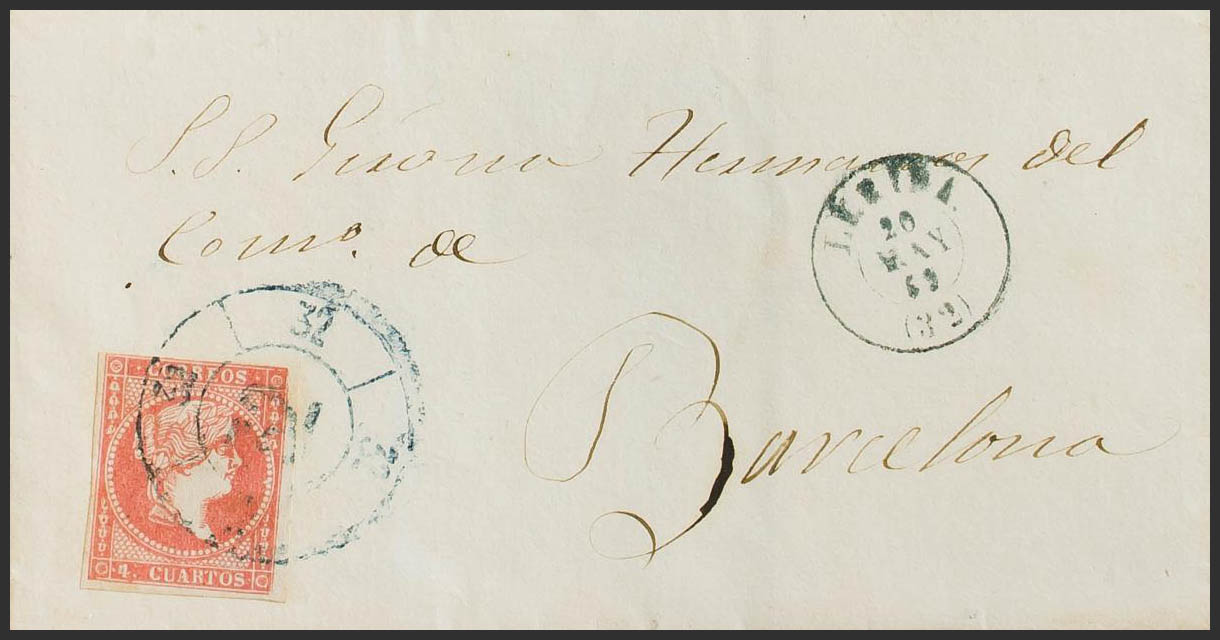 S. S. Girona Hermanos del
Com.º de
Barcelona
LERIDA
20
MAY
(32)
32
CORREOS
4. CUARTOS